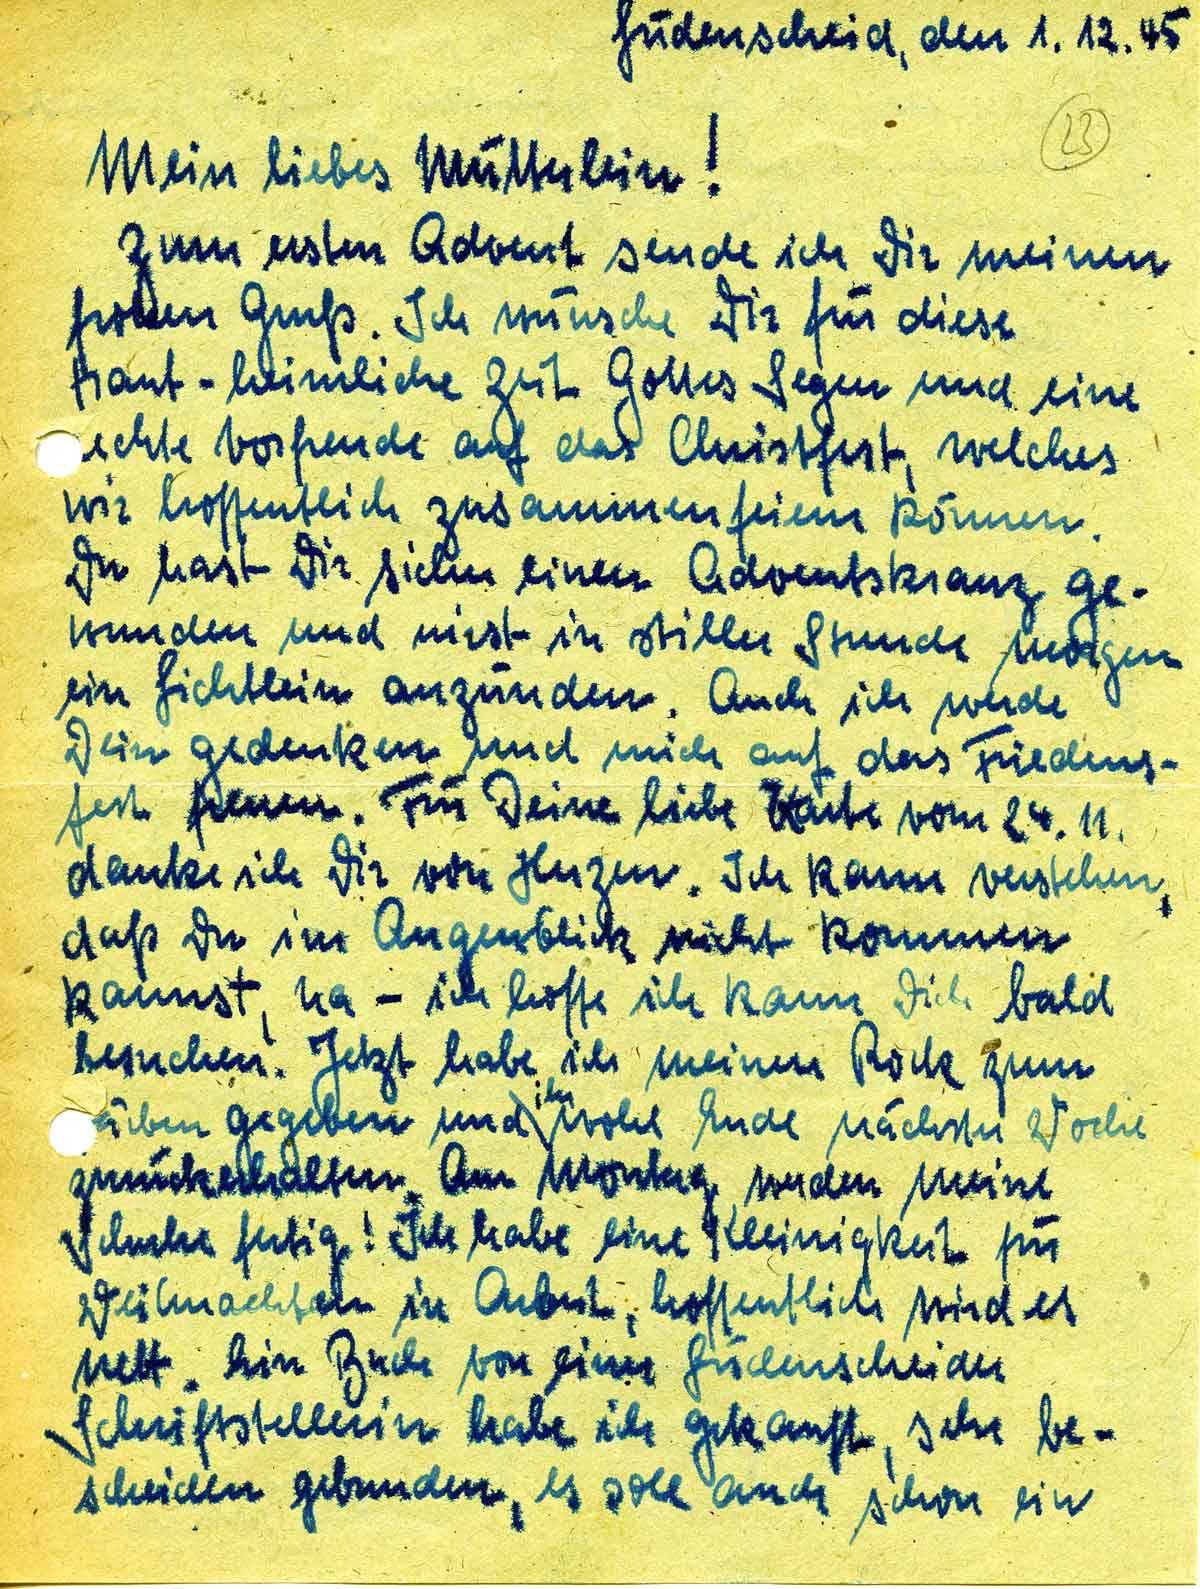 Lüdenscheid, den 1.12.45
23
Mein liebes Mütterlein!
Zum ersten Advent sende ich Dir meinen
frohen Gruß. Ich wünsche Dir für diese
traut-heimliche Zeit Gottes Segen und eine
echte Vorfreude auf das Christfest, welches
wir hoffentlich zusammenfeiern können.
Du hast Dir sicher einen Adventskranz ge-
wunden und wirst in stiller Stunde morgen
ein Lichtlein anzünden. Auch ich werde
Dein gedenken und mich auf das Friedens-
fest freuen. Für Deine liebe Karte vom 24.11.
danke ich Dir von Herzen. Ich kann verstehen,
daß Du im Augenblick nicht kommen
kannst, na - ich hoffe ich kann Dich bald
besuchen. Jetzt habe ich meinen Rock zum
gegeben und ihn wohl Ende nächster Woche
zurückerhalten. Am Montag werden meine
Schuhe fertig! Ich habe eine Kleinigkeit für
Weihnachten in Arbeit, hoffentlich wird es
nett. Ein Buch von einer Lüdenscheider
Schriftstellerin habe ich gekauft, sehr be-
scheiden gebunden, es soll auch schon ein